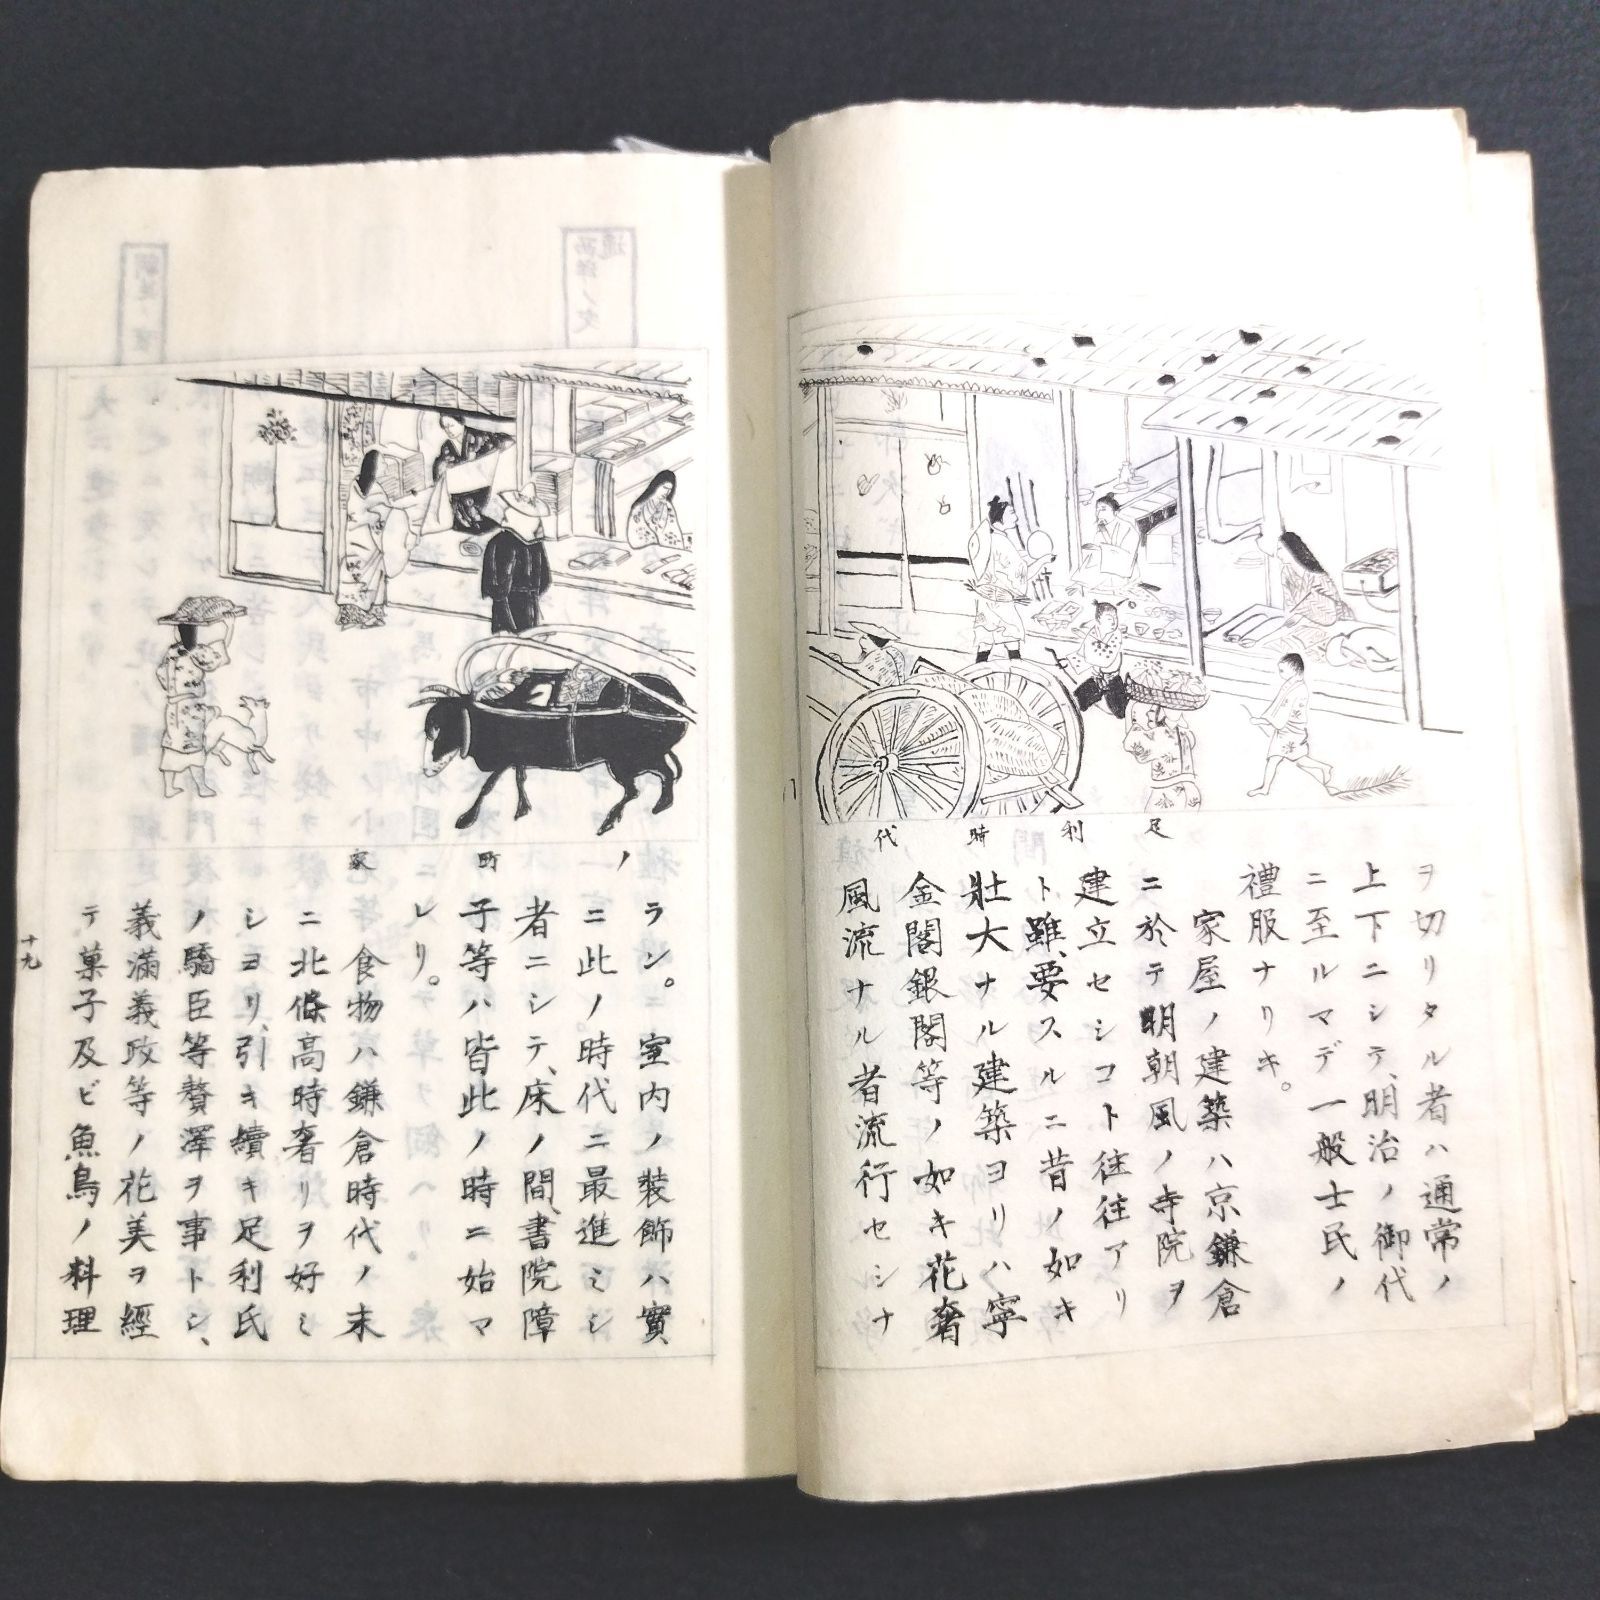 足利時代
ヲ切リタル者ハ通常ノ
上下ニシテ、明治ノ御代
ニ至ルマデ一般士民ノ
禮服ナリキ。
家屋ノ建築ハ京鎌倉
ニ於テ明朝風ノ寺院ヲ
建立セシコト往往アリ
ト雖、要スルニ昔ノ如キ
壯大ナル建築ヨリハ寧
金閣銀閣等ノ如キ花奢
風流ナル者流行セシナ
ノ町家
ラン。室内ノ裝飾ハ實
ニ此ノ時代ニ最進ミシ
者ニシテ、床ノ間、書院障
子等ハ皆此ノ時ニ始マ
レリ。
食物ハ鎌倉時代ノ末
ニ北條高時奢リヲ好ミ
シヨリ、引キ續キ足利氏
ノ驕臣等贅澤ヲ事トシ、
義滿義政等ノ花美ヲ經
テ菓子及ビ魚鳥ノ料理
十九